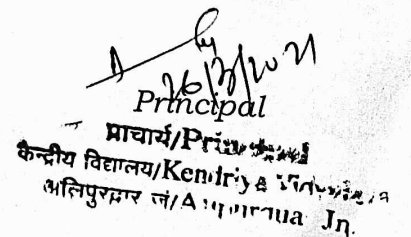 26/3/2021
Principal
प्राचार्य/Principal
केन्द्रीय विद्यालय/Kendriya Vidyalaya
अलिपुरद्वार जं/ Jn.